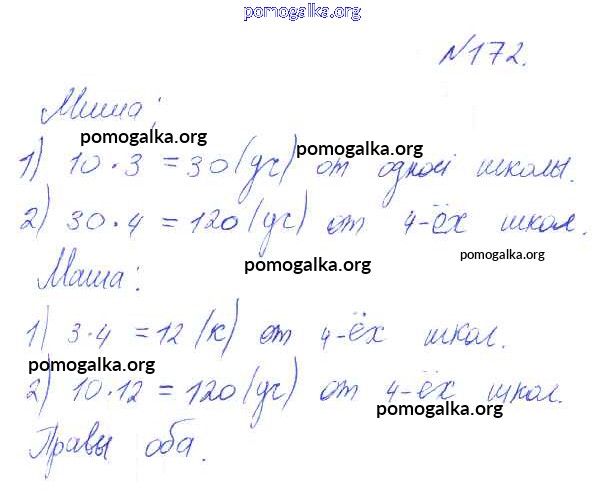 pomogalka.org
№172.
Миша:
pomogalka.org
1) 10·3 = 30 (уч) от одной школы.
pomogalka.org
2) 30·4 = 120 (уч) от 4-ёх школ.
pomogalka.org
pomogalka.org
Маша:
1) 3·4 = 12 (к) от 4-ёх школ.
pomogalka.org
2) 10·12 = 120 (уч) от 4-ёх школ.
pomogalka.org
Правы оба.